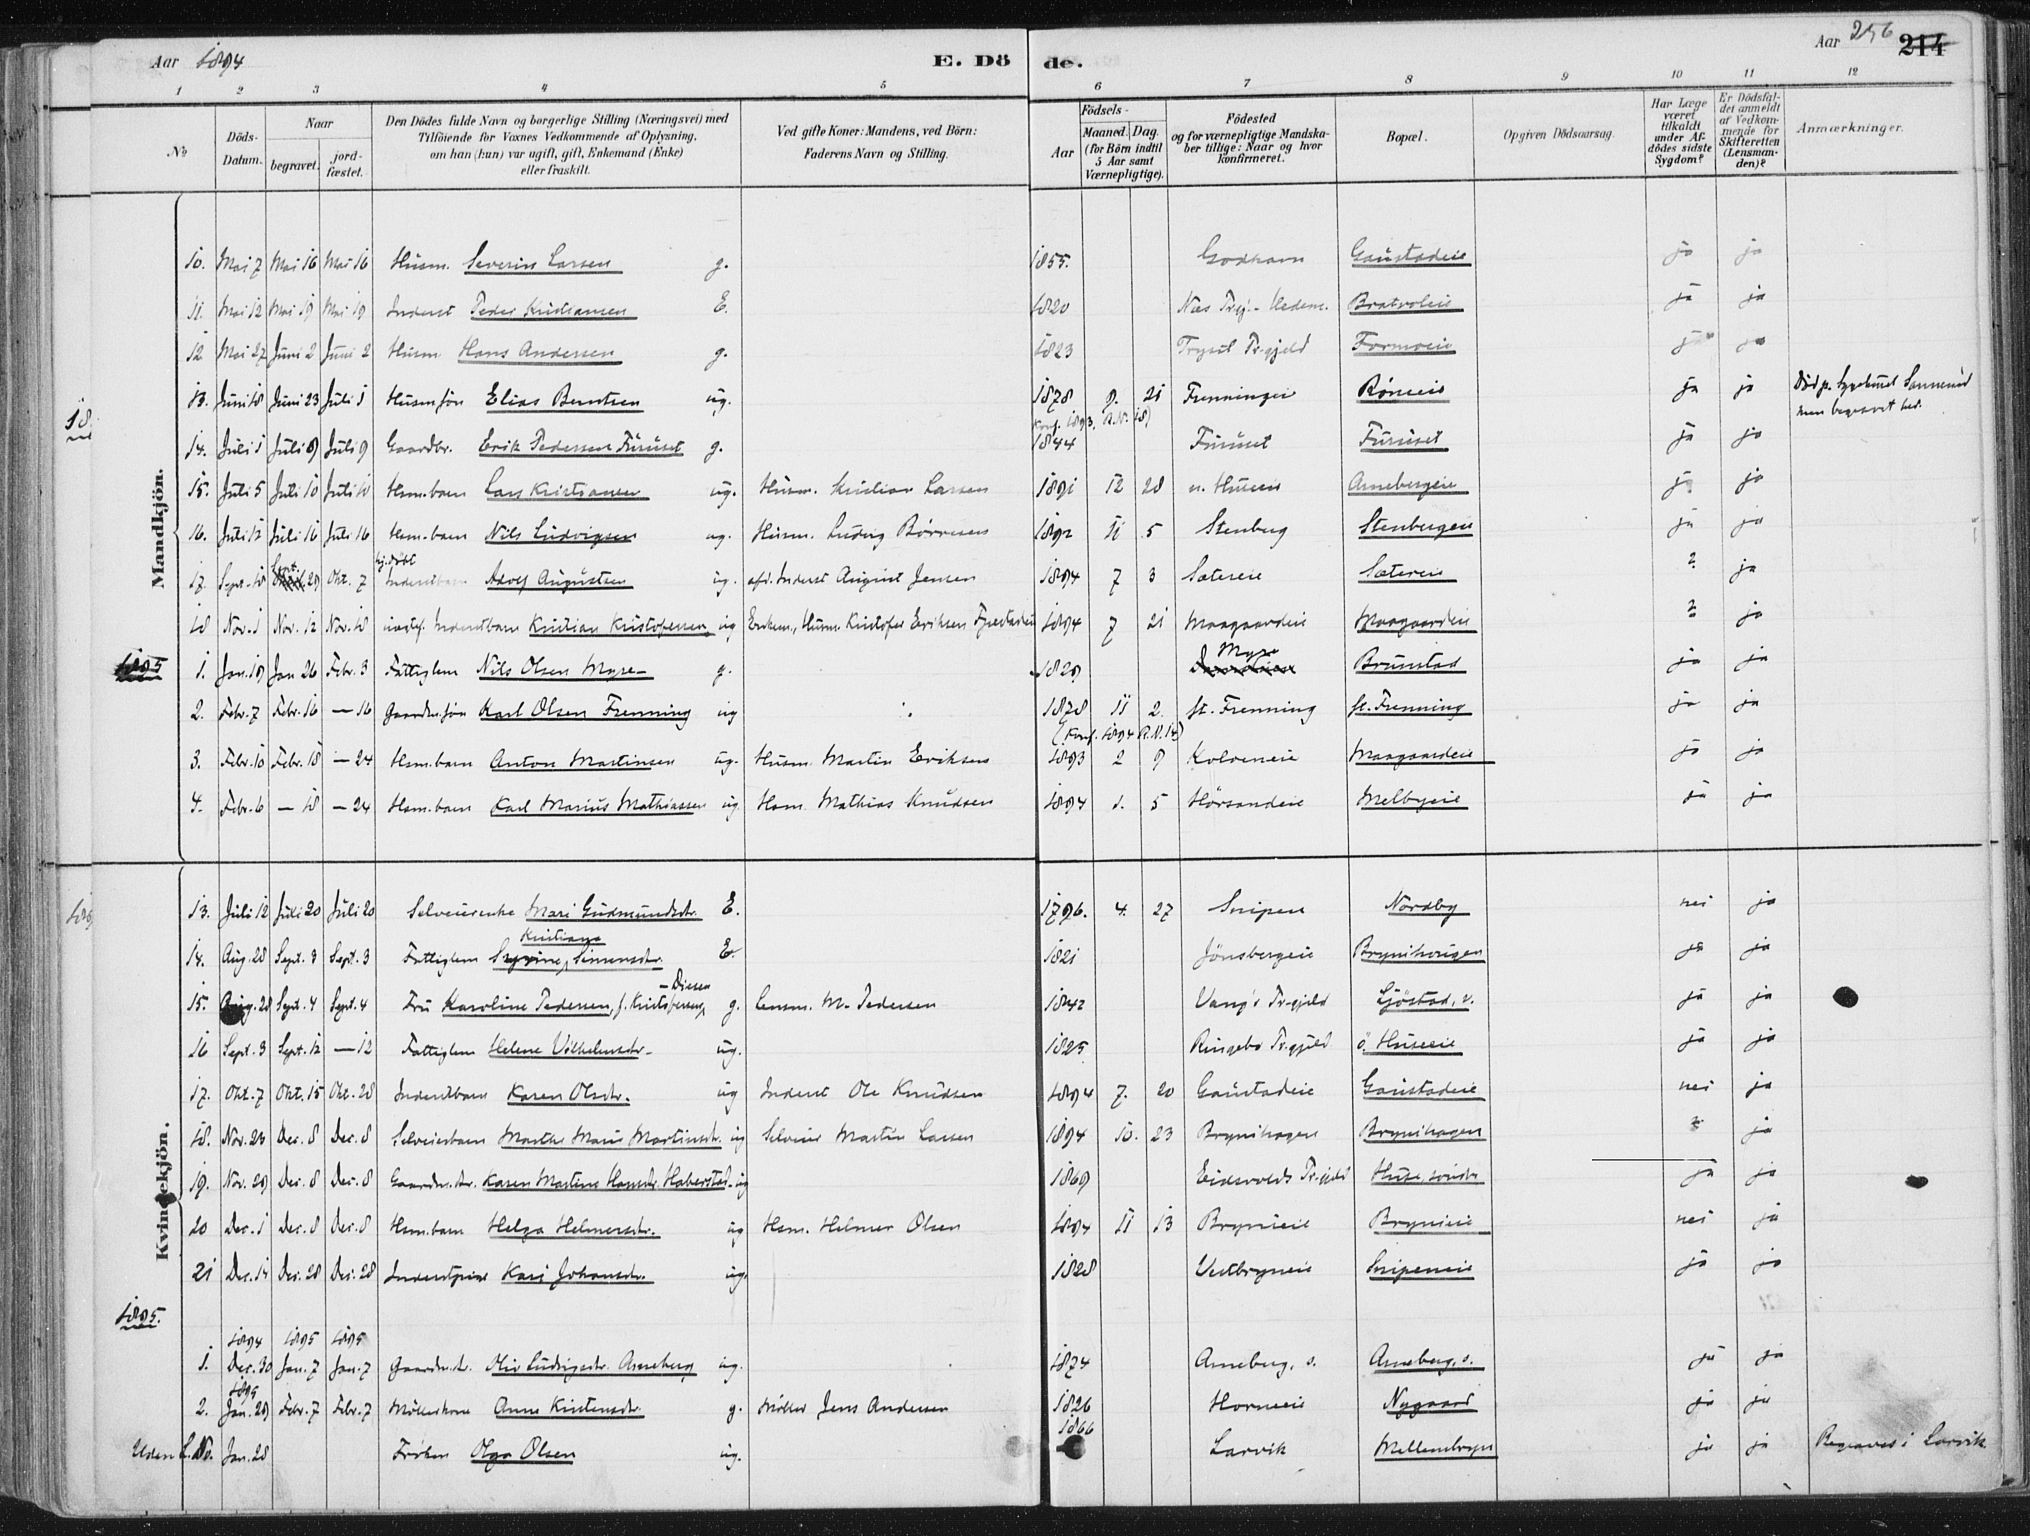 Aar 1894 E. Döde. Aar 256 214
1 2 3 4 5 6 7 8 9 10 11 12
No
Döds-Datum.
Naar begravet. jordfæstet.
Den Dödes fulde Navn og borgerlige Stilling (Næringsvei) med Tilföiende for Voxnes Vedkommende af Oplysning, om han (hun) var ugift, gift, Enkemand (Enke) eller fraskilt.
Ved gifte Koner: Mandens, ved Börn: Faderens Navn og Stilling.
Födsels- Aar Maaned. Dag. (for Börn indtil 5 Aar samt Værnepligtige).
Födested og for værnepligtige Mandskaber tillige: Naar og hvor konfirmeret.
Bopæl.
Opgiven Dödsaarsag.
Har Læge været tilkaldt under Afdödes sidste Sygdom?
Er Dödsfaldet anmeldt af Vedkommende for Skifteretten (Lensmanden)?
Anmærkninger.
Mandkjön.
10. Mai 7 Mai 16 Mai 16 Husm. Severin Larsen g. 1855. Godhavn Gaustadeie ja ja
11. Mai 12 Mai 19 Mai 19 Inderst Peder Kristiansen E. 1820 Næs Prgj. - Hedem. Bratvoleie ja ja
12 Mai 27 Juni 2 Juni 2 Husm. Hans Andersen g. 1823 Trysil Pr.gjeld Formoeie ja ja
13. Juni 18 Juni 23 Juli 1 Husm.søn Elias Berntsen ug. 1878 9. 21 Frenningei Röneeie ja ja Död p. Sygehuset Sannerud men begravet her.
Konf. 1893, R.N. 18)
14. Juli 1 Juli 9 Juli 9 Gaardbr. Erik Pedersen Furuset g. 1844 Furuset Furuset ja ja
15. Juli 5 Juli 10 Juli 10 Hsm.barn Lars Kristiansen ug. Husm. Kristian Larsen 1891 12 28 n. Huseeie Arnebergeie ja ja
16. Juli 12 Juli 16 Juli 16 Hsm.barn Nils Ludvigsen ug. Husm. Ludvig Børresen 1892 11 5 Stenberg Stenbergeie ja ja
17. Sept. 18 Sept. 29 Okt. 7 Inderstbarn Adolf Augustsen ug. afd. Inderst August Jensen 1894 7 3 Sætereie Sætereie ? ja
18 Nov. 1 Nov. 12 Nov. 18 Inderstbarn Kristian Kristofersen ug Enkem., Husm. Kristofer Eriksen 1894 7 21 Maagaardeie Maagaardeie ? ja
1895
1. Jan. 19 Jan 26 Febr. 3 Fattiglem Nils Olsen Myre g. 1829 Myre Brunstad ja ja
2. Febr. 7 Febr. 16 — 16 Gaardm.søn Karl Olsen Frenning ug 1878 11 2. st. Frenning st. Frenning ja ja
(Konf. 1894 R.N. 14)
3. Febr. 10 Febr. 18 — 24 Hsm.barn Anton Martinsen ug. Husm. Martin Eriksen 1893 2 9 Kolveneie Maagaardeie ja ja
4. Febr. 6 — 18 — 24 Hsm.barn Karl Marius Mathiassen ug. Hsm. Mathias Knudsen 1894 1. 5 Hörsandeie Melbyeie ja ja
Kvindekjön.
13. Juli 12 Juli 20 Juli 20 Selveierenke Mari Gudmundsdtr. E. 1796. 4. 27 Snipen Nordby nei ja
Kristiane
14. Aug. 28 Sept. 3 Sept. 3 Fattiglem Simensdtr. E. 1821 Jönsbergeie Brynihougen ja ja
15. Aug. 28 Sept. 4 Sept. 4 Fru Karoline Pedersen, f. Kristofersen - Diesen g. Lensm. M. Pedersen 1842 Vang's Pr.gjeld Gjöstad, v. ja ja
16 Sept. 3 Sept. 12 — 12 Fattiglem Helene Vilhelmsdtr. ug. 1825 Ringebo Pr.gjeld ö. Huseeie ja ja
17. Okt. 7 Okt. 15 Okt. 28 Inderstbarn Karen Olsdtr. ug Inderst Ole Knudsen 1894 7. 20 Gaustadeie Gaustadeie nei ja
18. Nov. 23 Dec. 8 Dec. 8 Selveierbarn Marthe Marie Martinsdtr. ug Selveier Martin Larsen 1894 10. 23 Brynihagen Brynihagen ? ja
19. Nov. 29 Dec. 8 Dec. 8 Gaardm.dtr. Karen Martine Hansdtr. Haberstad ug 1869 Eidsvolds Pr.gjeld Huse, söndre ja ja
20 Dec. 1 Dec. 8 Dec. 8 Hsm.barn Helga Helmersdtr. ug Hsm. Helmer Olsen 1894 11 13 Brynieie Brynieie nei ja
21 Dec. 14 Dec. 28 Dec. 28 Inderstpige Kari Johansdtr. ug. 1828 Vestbrynieie Snipeneie ja ja
1895.
1894 1895 1895
1. Dec. 30 Jan. 7 Jan. 7 Gaardm.d. Ludvigsdtr. Arneberg ug. 1874 Arneberg, s. Arneberg, s. ja ja
1895
2. Jan. 29 Febr. 7 Febr. 7 Möllerkone Anne Kristensdtr. g. Möller Jens Andersen 1826 Horneeie Nygaard ja ja
Uden L.N. Jan. 28 Frøken Olga Olsen ug. 1866 Larvik Mellembryn ja ja Begraves i Larvik.